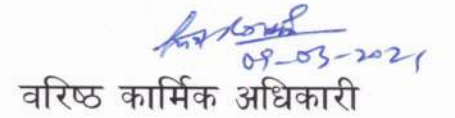 09-03-2021
वरिष्ठ कार्मिक अधिकारी